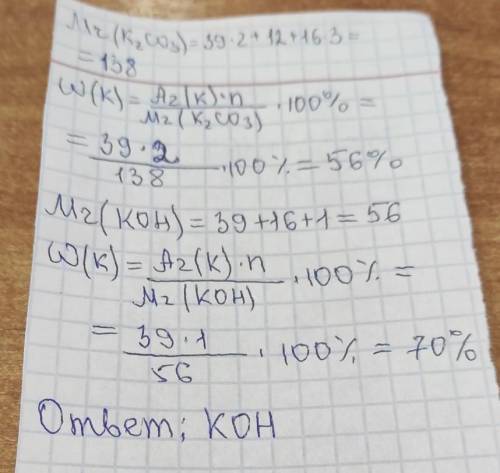 Mr(K₂CO₃)=39·2+12+16·3=
=138
W(K)=Ar(K)·n/Mr(K₂CO₃)·100%=
=39·2/138·100%=56%
Mr(KOH)=39+16+1=56
W(K)=Ar(K)·n/Mr(KOH)·100%=
=39·1/56·100%=70%
Ответ: KOH